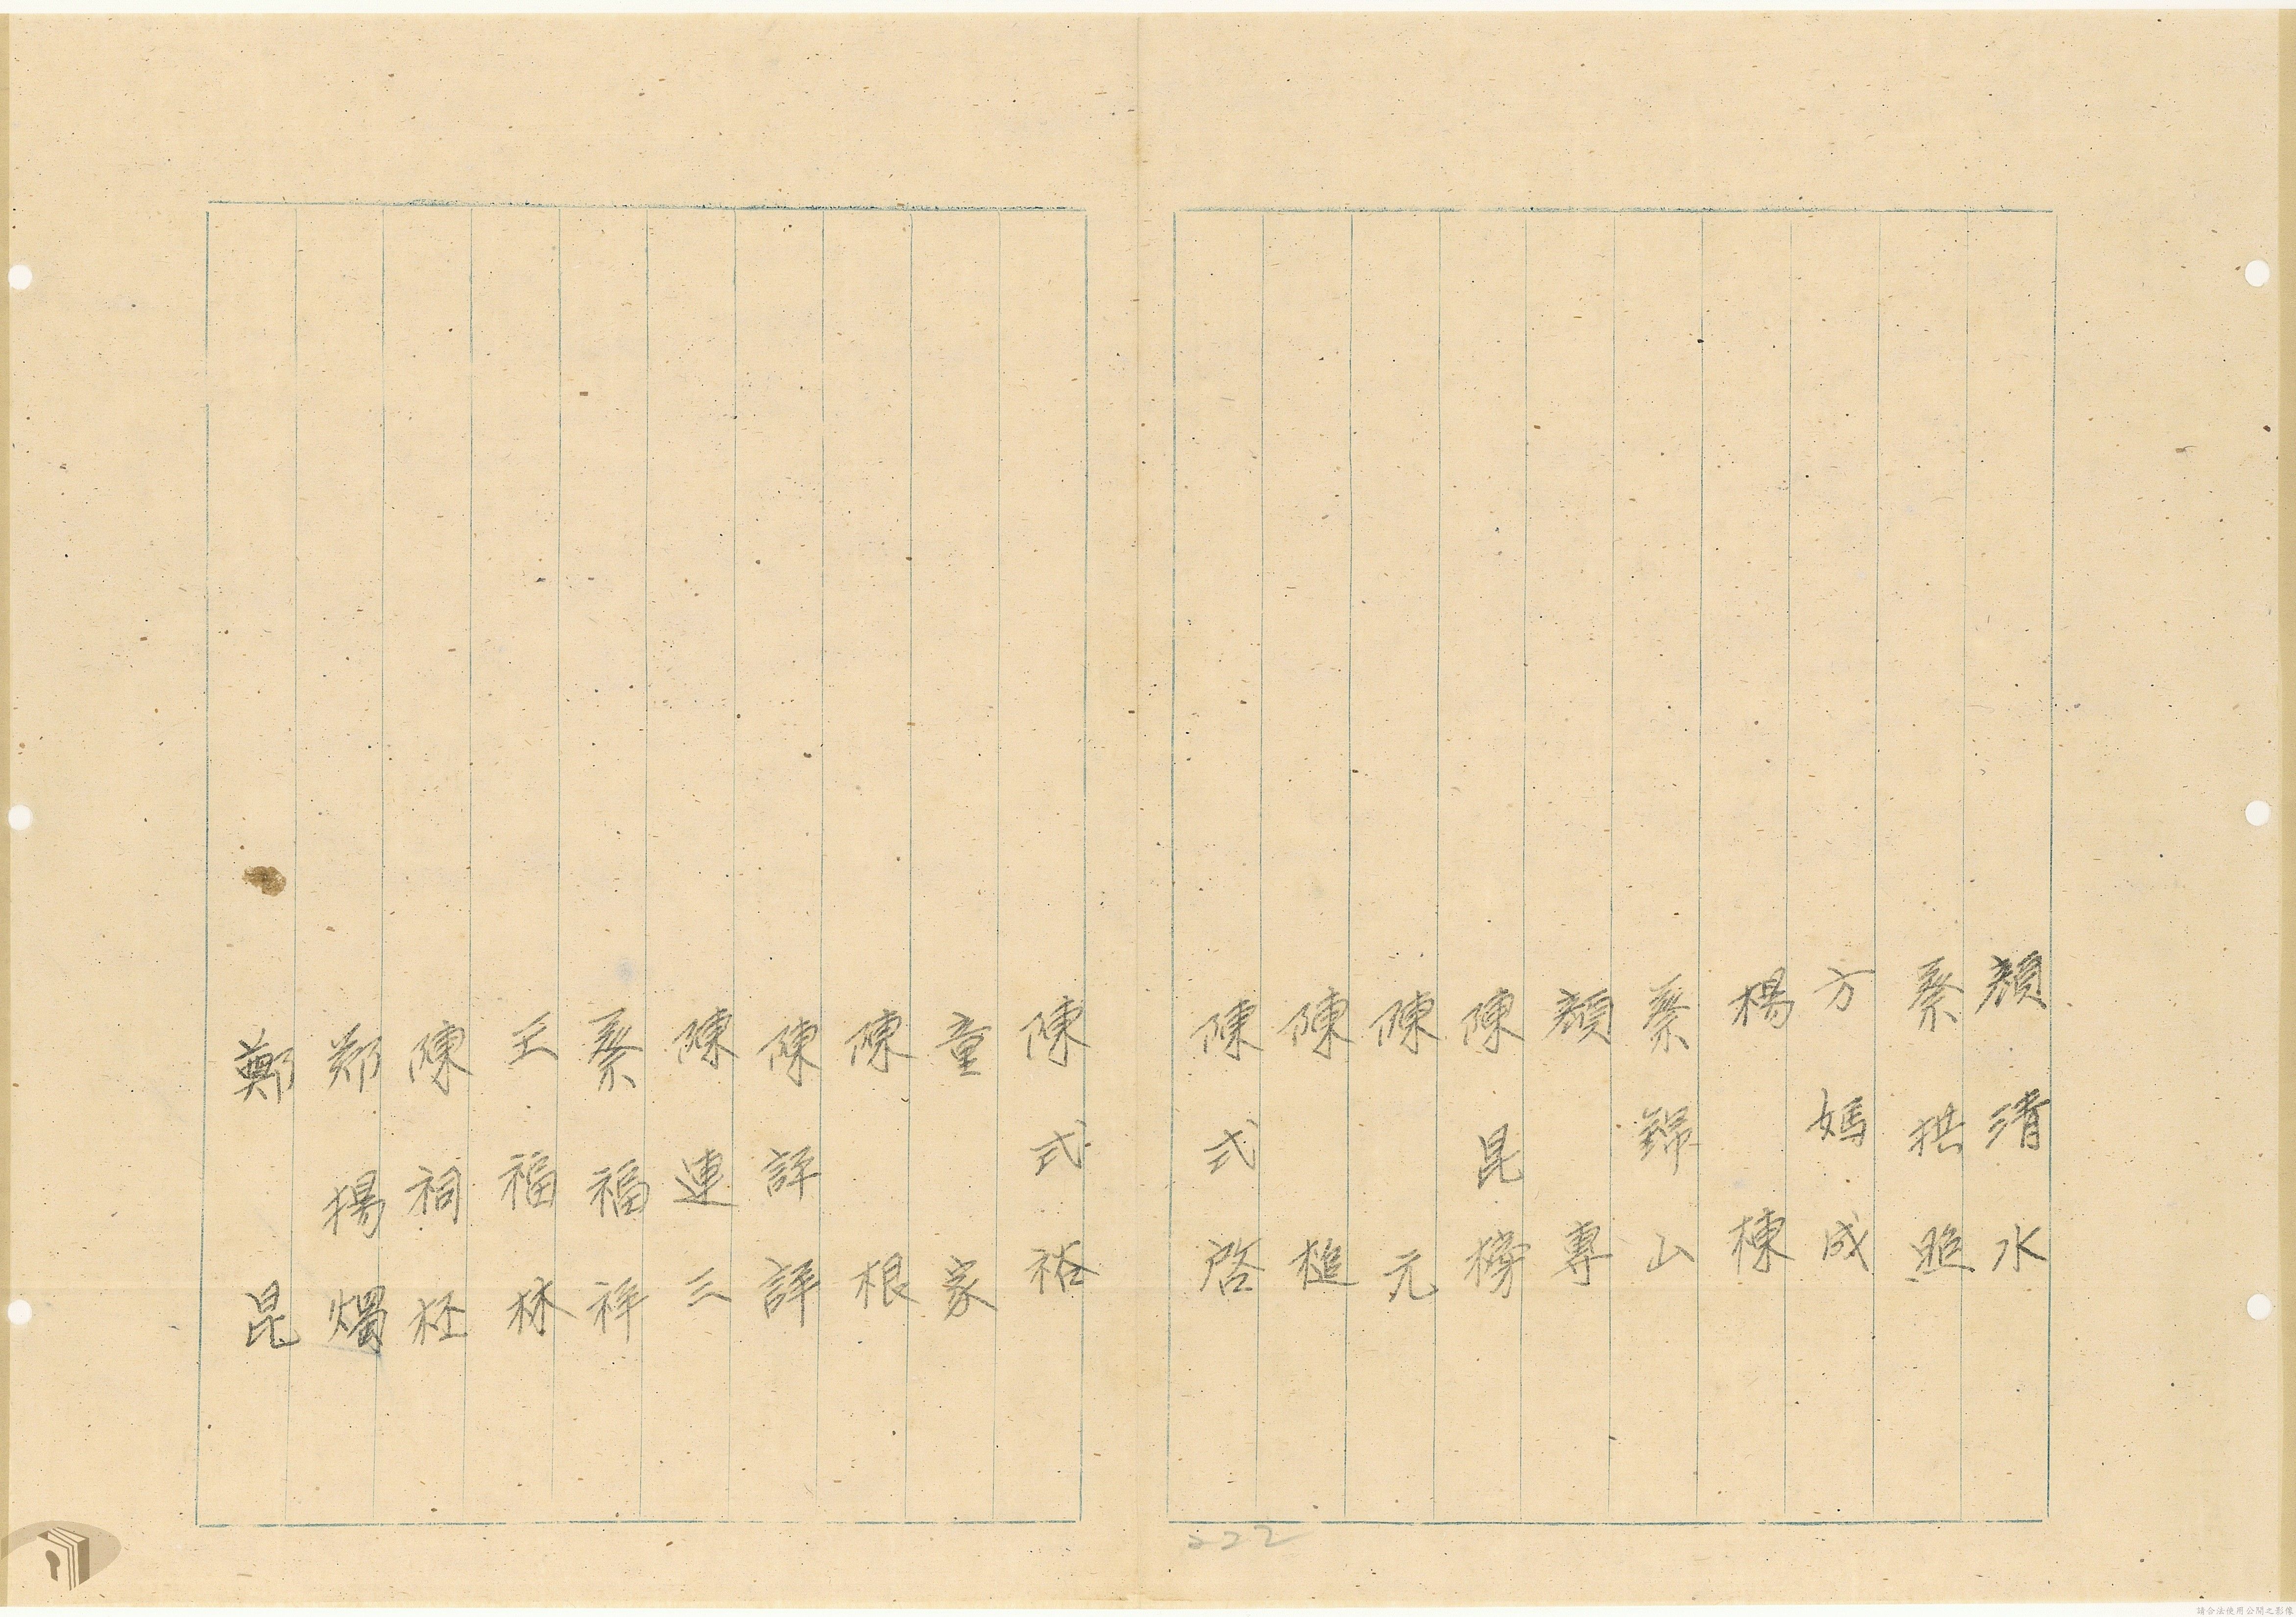 顏清水
蔡拱照
方媽成
楊棟
蔡錦山
顏專
陳昆榜
陳元
陳槌
陳式啓
陳式裕
童家
陳根
陳評詳
陳連三
蔡福祥
王福林
陳祠
鄭揚燭
鄭昆
222
請合法使用公開之影像